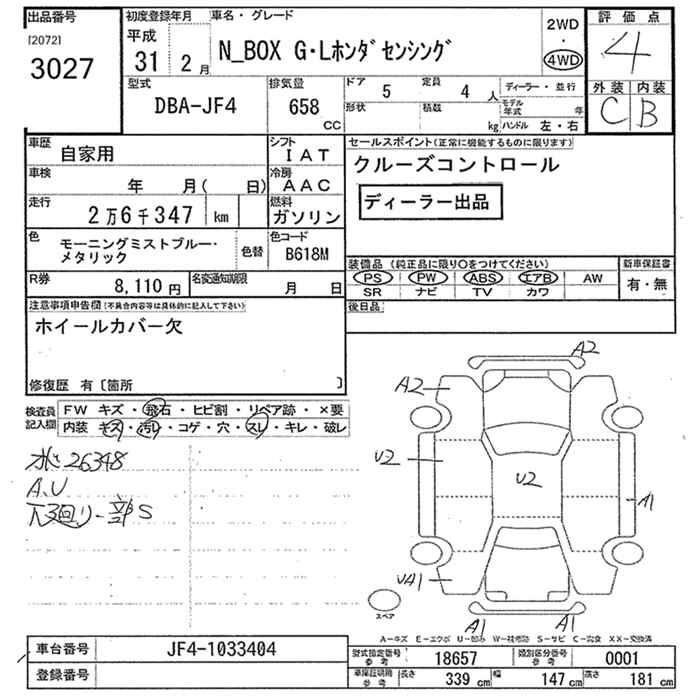 出品番号 初度登録年月 車名・グレード 2WD ・ 4WD 評価点
[2072] 3027 平成 31 2月 N_BOX G・Lホンダセンシング 4
型式 DBA-JF4 排気量 658 CC ドア 5 定員 4 人 ディーラー・並行 外装 内装
形状 積載 kg モデル年式 年 ハンドル 左・右 C B
車歴 自家用 シフト IAT セールスポイント(正常に機能するものに限ります)
車検 年 月( 日) 冷房 AAC クルーズコントロール
走行 2万6千347 km 燃料 ガソリン ディーラー出品
色 モーニングミストブルー・メタリック 色替 色コード B618M
装備品(純正品に限り○をつけてください) 新車保証書
R券 8,110円 名変通知期限 月 日 PS PW ABS エアB AW 有・無
SR ナビ TV カワ
注意事項申告欄(不具合内容等は具体的に記入して下さい) 後日品
ホイールカバー欠
修復歴 有〔箇所 〕
検査員記入欄 FW キズ・飛石・ヒビ割・リペア跡・×要
内装 キズ・汚レ・コゲ・穴・スレ・キレ・破レ
26348
A,U
A2
A2
U2
U2
A1
UA1
A1 A1
スペア
A-キズ E-エクボ U-凹み W-補修跡 S-サビ C-腐食 XX-交換済
車台番号 JF4-1033404 型式指定番号 参考 18657 類別区分番号 参考 0001
登録番号 車庫証明用 参考 長さ 339 cm 幅 147 cm 高さ 181 cm